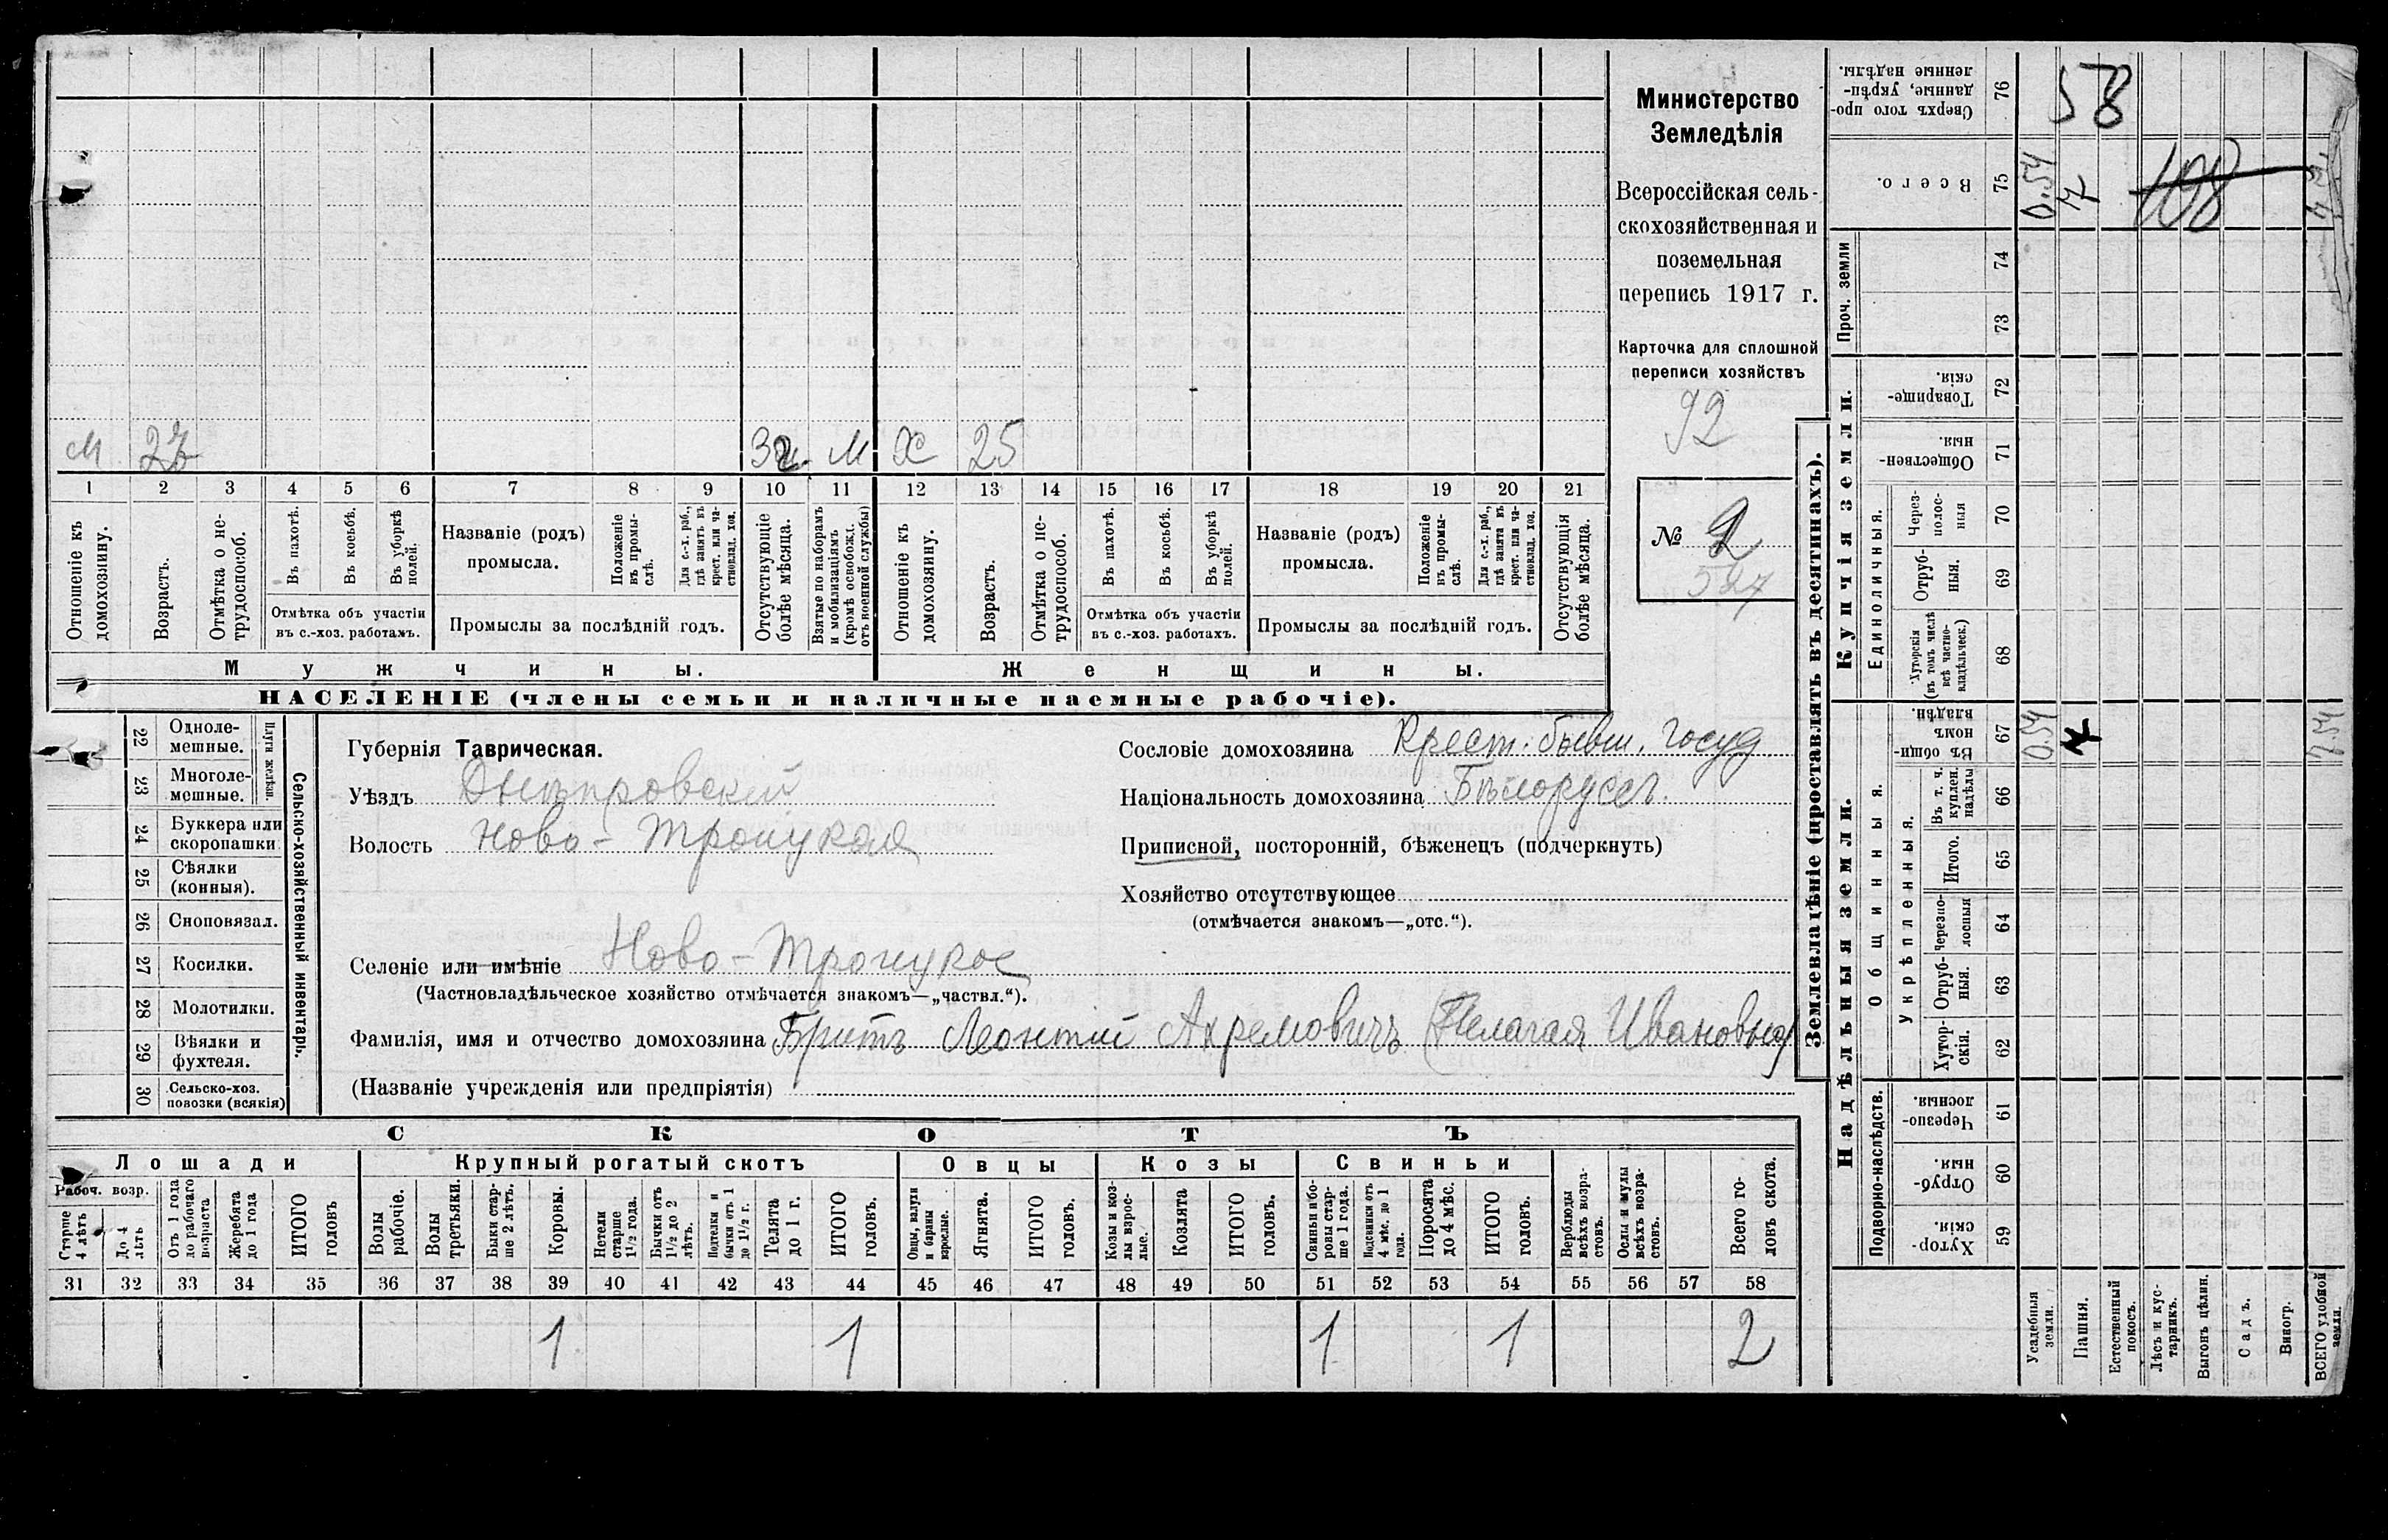 Министерство
Земледѣлія
Всероссійская сель-
скохозяйственная и
поземельная
перепись 1917 г.
Карточка для сплошной
переписи хозяйствъ
92
№ 2
527
М 27 М Ж 25
1 2 3 4 5 6 7 8 9 10 11 12 13 14 15 16 17 18 19 20 21
Отношеніе къ домохозяину.
Возрастъ.
Отмѣтка о не-трудоспособ.
Въ пахотѣ.
Въ косьбѣ.
Въ уборкѣ полей.
Отмѣтка объ участіи
въ с.-хоз. работахъ.
Названіе (родъ)
промысла.
Положеніе въ промы-слѣ.
Для с.-х. раб., гдѣ занятъ въ крест. или ча-стновлад. хоз.
Промыслы за послѣдній годъ.
Отсутствующіе болѣе мѣсяца.
Взятые по наборамъ и мобилизаціямъ (кромѣ освобожд. отъ военной службы)
Отношеніе къ домохозяину.
Возрастъ.
Отмѣтка о не-трудоспособ.
Въ пахотѣ.
Въ косьбѣ.
Въ уборкѣ полей.
Отмѣтка объ участіи
въ с.-хоз. работахъ.
Названіе (родъ)
промысла.
Положеніе въ промы-слѣ.
Для с.-х. раб., гдѣ занята въ крест. или ча-стновлад. хоз.
Промыслы за послѣдній годъ.
Отсутствующія болѣе мѣсяца.
Мужчины. Женщины.
НАСЕЛЕНІЕ (члены семьи и наличные наемные рабочіе).
22 Одноле-мешные.
23 Многоле-мешные.
Плуги желѣзн.
24 Буккера или скоропашки
25 Сѣялки (конныя).
26 Сноповязал.
27 Косилки.
28 Молотилки.
29 Вѣялки и фухтеля.
30 Сельско-хоз. повозки (всякія)
Сельско-хозяйственный инвентарь.
Губернія Таврическая.
Уѣздъ Днѣпровскій
Волость Ново-Троицкая
Селеніе или имѣніе Ново-Троицкое
(Частновладѣльческое хозяйство отмѣчается знакомъ—„частвл.“).
Фамилія, имя и отчество домохозяина Бритъ Леонтій Ахремовичъ (Пелагея Ивановна)
(Названіе учрежденія или предпріятія)
Сословіе домохозяина Крест. бывш. госуд
Національность домохозяина Бѣлоруссъ.
Приписной, посторонній, бѣженецъ (подчеркнуть)
Хозяйство отсутствующее
(отмѣчается знакомъ—„отс.“).
СКОТЪ
Лошади Крупный рогатый скотъ Овцы Козы Свиньи
Рабоч. возр.
Старше 4 лѣтъ
До 4 лѣтъ
Отъ 1 года до рабочаго возраста
Жеребята до 1 года
ИТОГО головъ
Волы рабочіе.
Волы третьяки.
Быки стар-ше 2 лѣтъ.
Коровы.
Нетели старше 1½ года.
Бычки отъ 1½ до 2 лѣтъ.
Подтелки и бычки отъ 1 до 1½ г.
Телята до 1 г.
ИТОГО головъ.
Овцы, валухи и бараны взрослые.
Ягнята.
ИТОГО головъ.
Козы и коз-лы взрос-лые.
Козлята
ИТОГО головъ.
Свиньи и бо-ровы стар-ше 1 года.
Подсвинки отъ 4 мѣс. до 1 года.
Поросята до 4 мѣс.
ИТОГО головъ.
Верблюды всѣхъ возра-стовъ.
Ослы и мулы всѣхъ возра-стовъ.
Всего го-ловъ скота.
31 32 33 34 35 36 37 38 39 40 41 42 43 44 45 46 47 48 49 50 51 52 53 54 55 56 57 58
1 1 1 1 2
Землевладѣніе (проставлять въ десятинахъ).
Надѣльныя земли. Купчія земли. Проч. земли
Подворно-наслѣдств.
Общинныя.
Укрѣпленныя.
Единоличныя.
59 Хутор-скія
60 Отруб-ныя.
61 Черезпо-лосныя.
62 Хутор-скія.
63 Отруб-ныя.
64 Черезпо-лосныя
65 Итого.
66 Въ т. ч. куплен. надѣлы
67 Въ общи-номъ владѣн.
68 Хуторскія (въ томъ числѣ всѣ частно-владѣльческ.)
69 Отруб-ныя.
70 Через-полос-ныя
71 Обществен-ныя.
72 Товарище-скія.
73
74
75 Всего.
76 Сверхъ того про-данные, укрѣп-ленные надѣлы.
Усадебныя земли.
Пашня.
Естественный покосъ.
Лѣсъ и кус-тарникъ.
Выгонъ цѣлин.
Садъ.
Виногр.
ВСЕГО удобной земли.
0.54
0.54
58
108